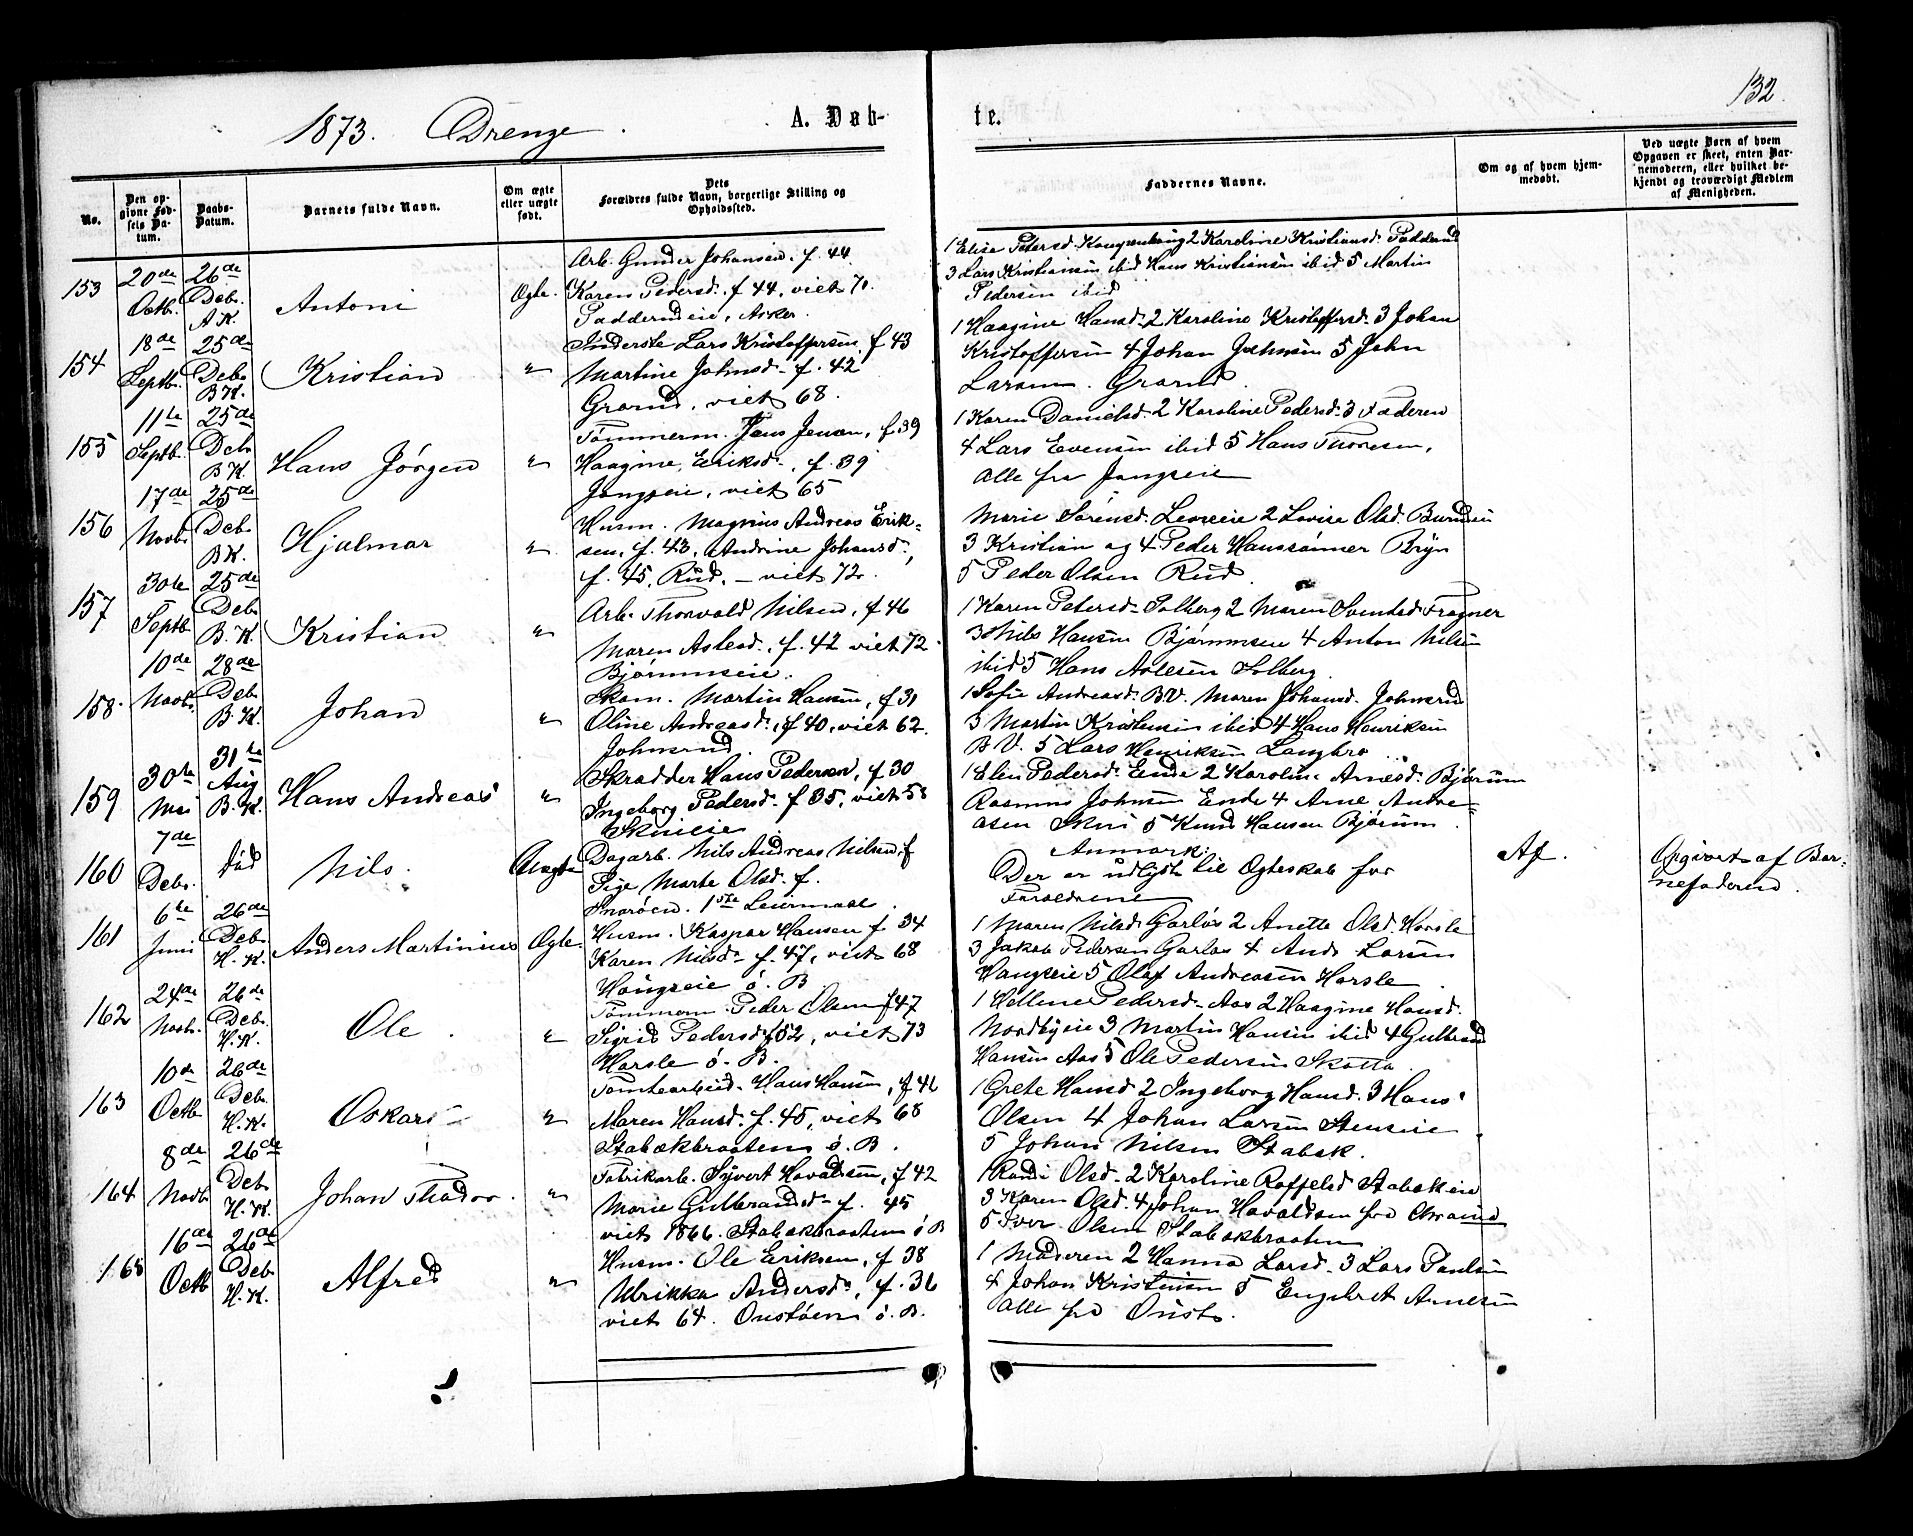 132.
1873. Drenge. A. Døb-te.
No.
Den opgivne Fødsels Datum.
Daabs-Datum.
Barnets fulde Navn.
Om ægte eller uægte født.
Dets Forældres fulde Navn, borgerlige Stilling og Opholdssted.
Faddernes Navne.
Om og af hvem hjemmedøbt.
Ved uægte Børn af hvem Opgaven er skeet, enten Barnemoderen, eller hvilket bekjendt og troværdigt Medlem af Menigheden.
153 20de Octb. 26de Debr. A K. Antoni Ægte.
Arb. Gunder Johansen. f. 44
Karen Pedersd. f 44, viet 71.
Padderudeie, Asker.
1 Elise Petersd. 2 Karoline Kristiansd. Padderud
3 Lars Kristiansen ibid Hans Kristiansen ibid 5 Martin
Pedersen ibid
154 18de Septb. 25de Debr. B K. Kristian "
Inderste Lars Kristoffersen f 43
Martine Johnsd. f. 42
Grorud, viet 68.
1 Haagine Hansd. 2 Karoline Kristoffersd. 3 Johan
Kristoffersen 4 Johan Johnsen 5 John
Larsen. Grorud.
155 11te Septb. 25de Debr. B K Hans Jørgen "
Tømmerm. Jens Jensen, f. 39
Haagine Eriksd., f. 39
Jongseie, viet 65
1 Karen Danielsd. 2 Karoline Pedersd. 3 Faderen
4 Lars Evensen ibid 5 Hans Thoresen,
alle fra Jongseie
156 17de Novb. 25de Debr. B K. Hjalmar "
Husm. Magnus Andreas Erik-
sen, f. 43, Andrine Johansd.,
f. 45, Rud, – viet 72.
Marie Sørensd. 2 Lovise Olsd. Burud
3 Kristian og 4 Peder Hanssønner Bryn
5 Peder Olsen Rud.
157 30te Septb. 25de Debr. B. K Kristian "
Arb. Thorvald Nilsen, f 46
Maren Aslesd., f. 42 viet 72.
Bjørnmseie.
1 Karen Petersd. Solberg 2 Maren Fragner
3 Nils Hansen 4 Anton Nilsen
ibid 5 Hans Aslesen Solberg.
158. 10de Novb. 28de Debr. B. K. Johan "
Skom. Martin Hansen, f 31
Oline Andreasd., f 40, viet 62.
Johnsrud.
1 Sofie Andreasd. B.V. Maren Johansd. Johnsrud
3 Martin Kristensen ibid 4 Hans Henriksen
B V. 5 Lars Henriksen
159 30te Mai 31te Aug B. K. Hans Andreas "
Skrædder Hans Pedersen, f 30
Ingeborg Pedersd. f 35, viet 58
Skuieie
1 Elen Pedersd. Ende 2 Karoline Arnesd. Bjørum
Rasmus Johnsen Ende 4 Arne Andre-
asen Skui 5 Knud Hansen Bjørum.
160 7de Debr. død Nils. Uægte
Dagarb. Nils Andreas Nilsen, f
Pige Marte Olsd. f.
Snarøen. 1ste Leiermaal.
Anmærk:
Der er udlyst til Ægteskab for
Forældrene
Af.
Opgivet af Bar-
nefaderen.
161 6te Juni 26de Debr. H. K. Anders Martinius Ægte.
Husm. Kaspar Hansen f. 34
Karen Nilsd. f. 47, viet 68
Haugseie ø. B.
1 Maren Nilsd. Garløs 2 Anette Olsd. Horsle
3 Jakob Pedersen Garløs 4 Larsen
Haugseie 5 Olaf Andreasen Horsle.
162 24de Novb. 26de Debr. H. K. Ole. "
Tømmerm. Peder Olsen f 47
Sigrid Pedersd. f 52, viet 73
Horsle ø. B.
1 Hellene Pedersd. Aas 2 Haagine Hansd.
Nordbyeie 3 Martin Hansen ibid 4 Gulbrand
Hansen Aas 5 Ole Pedersen Skotta.
163 10de Octb. 26de Debr. H. K. Oskar "
Tomtearbeid. Hans Hansen, f 46
Maren Hansd. f. 45, viet 68
Stabækbraaten ø. B.
1 Grete Hansd 2 Ingeborg Hansd. 3 Hans
Olsen 4 Johan Larsen Stenseie.
5 Johan Nilsen Stabæk.
164 8de Novb. 26de Debr. H. K. Johan Theodor. "
Fabrikarb. Syvert Havaldsen, f 42
Marie Gulbrandsd. f. 45
viet 1866. Stabækbraaten ø B
1 Randi Olsd. 2 Karoline Roffelsd Stabækeie
3 Karen Olsd. 4 Johan Havaldsen fra
5 Iver Olsen Stabækbraaten
165 16de Octb 26de Debr. H. K. Alfred "
Husm. Ole Eriksen, f 38
Ulrikka Andersd., f. 36
viet 64. Onstøen ø. B.
1 Moderen 2 Hanna Larsd. 3 Lars Paulsen
4 Johan Kristensen 5 Engebret Arnesen
alle fra Onst.